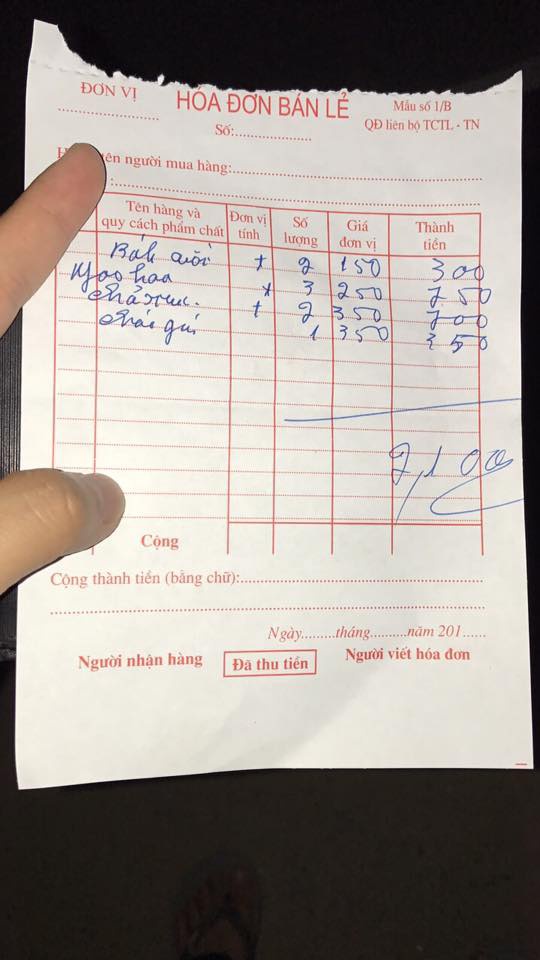 ĐƠN VỊ
HÓA ĐƠN BÁN LẺ
Mẫu số 1/B
QĐ liên bộ TCTL - TN
Số:
tên người mua hàng:
Tên hàng và quy cách phẩm chất Đơn vị tính Số lượng Giá đơn vị Thành tiền
2 150 300
hoa 3 250 750
2 350 700
1 350 350
2,100
Cộng
Cộng thành tiền (bằng chữ):
Ngày.........tháng.........năm 201......
Người nhận hàng Đã thu tiền Người viết hóa đơn